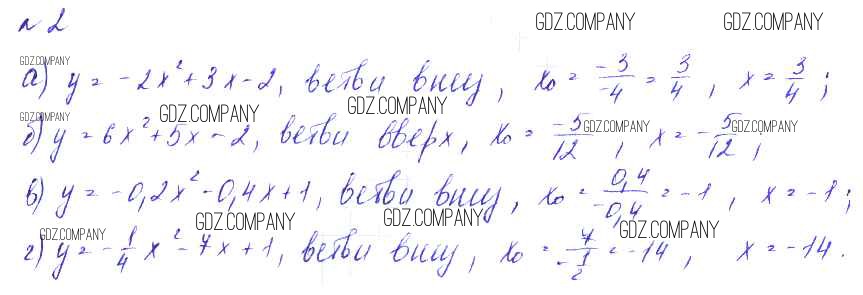 №2
GDZ.COMPANY GDZ.COMPANY
GDZ.COMPANY
а) y = -2x²+3x-2, ветви вниз, x₀ = -3/-4 = 3/4, x = 3/4;
GDZ.COMPANY GDZ.COMPANY
GDZ.COMPANY GDZ.COMPANY GDZ.COMPANY
б) y = 6x²+5x-2, ветви вверх, x₀ = -5/12, x = -5/12;
в) y = -0,2x²-0,4x+1, ветви вниз, x₀ = 0,4/-0,4 = -1, x = -1;
GDZ.COMPANY GDZ.COMPANY GDZ.COMPANY
GDZ.COMPANY
г) y = -1/4 x²-7x+1, ветви вниз, x₀ = 7/-1/2 = -14, x = -14.